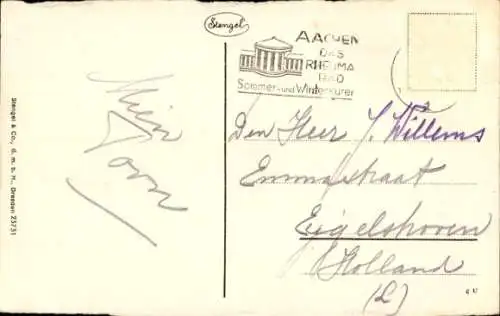 Stengel
AACHEN
DAS
RHEUMA
BAD
Sommer- und Winterkuren
Stengel & Co., G. m. b. H., Dresden 25731
Den Heer J. Willems
Emmastraat
Eigelshoven
Holland
(L)